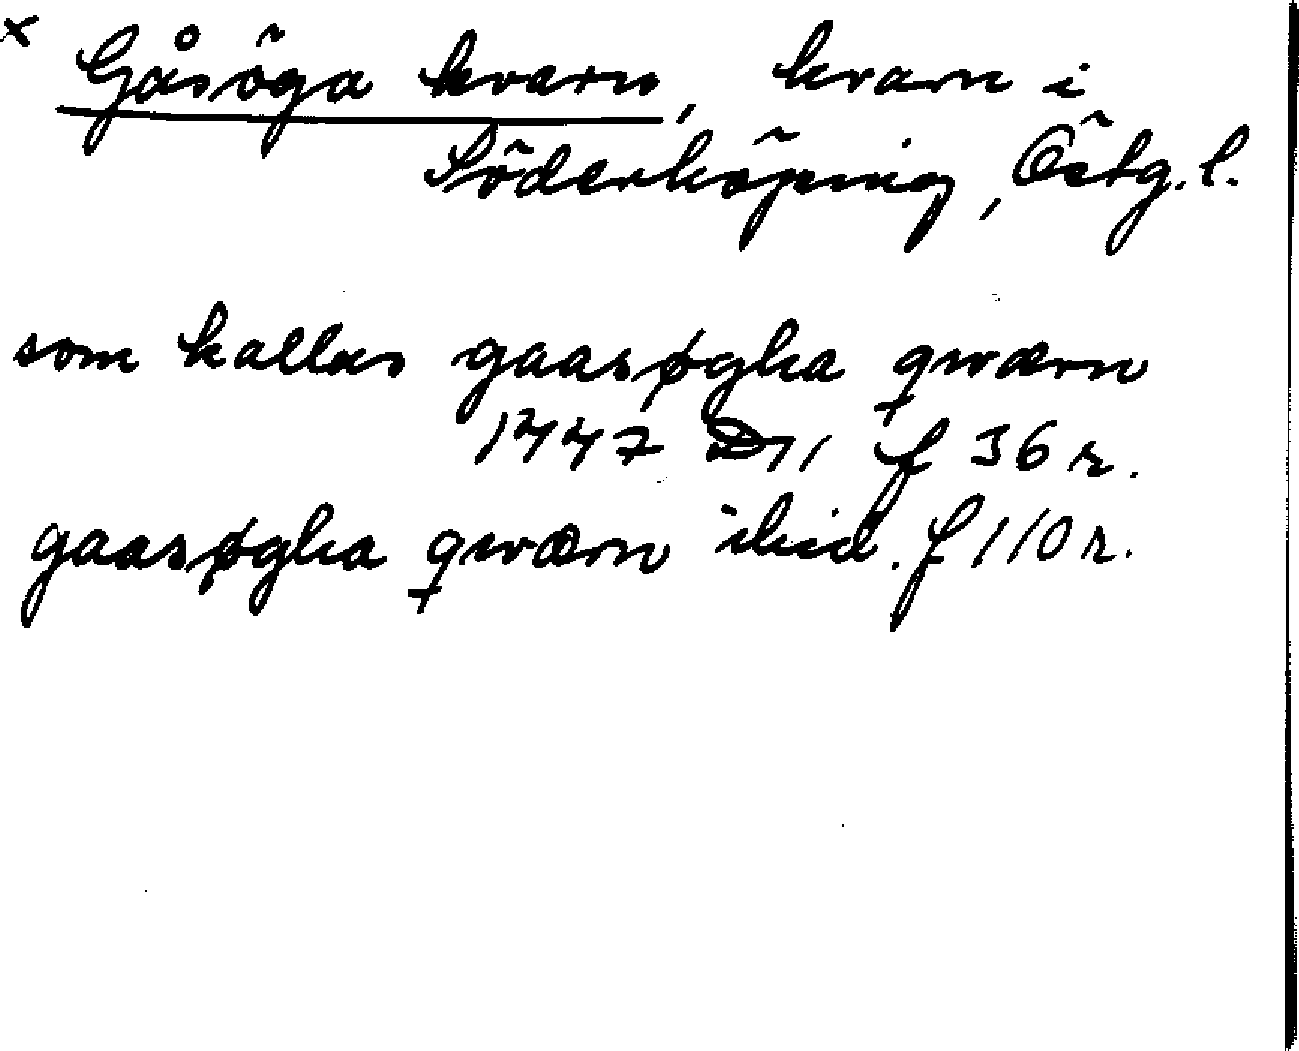 x Gåsöga kvarn, kvarn i
Söderköping, Östg. l.
som kallas gaasøgha qwærn
1447 D 11 f 36 r.
gaasøgha qwærn ibid. f 110 r.